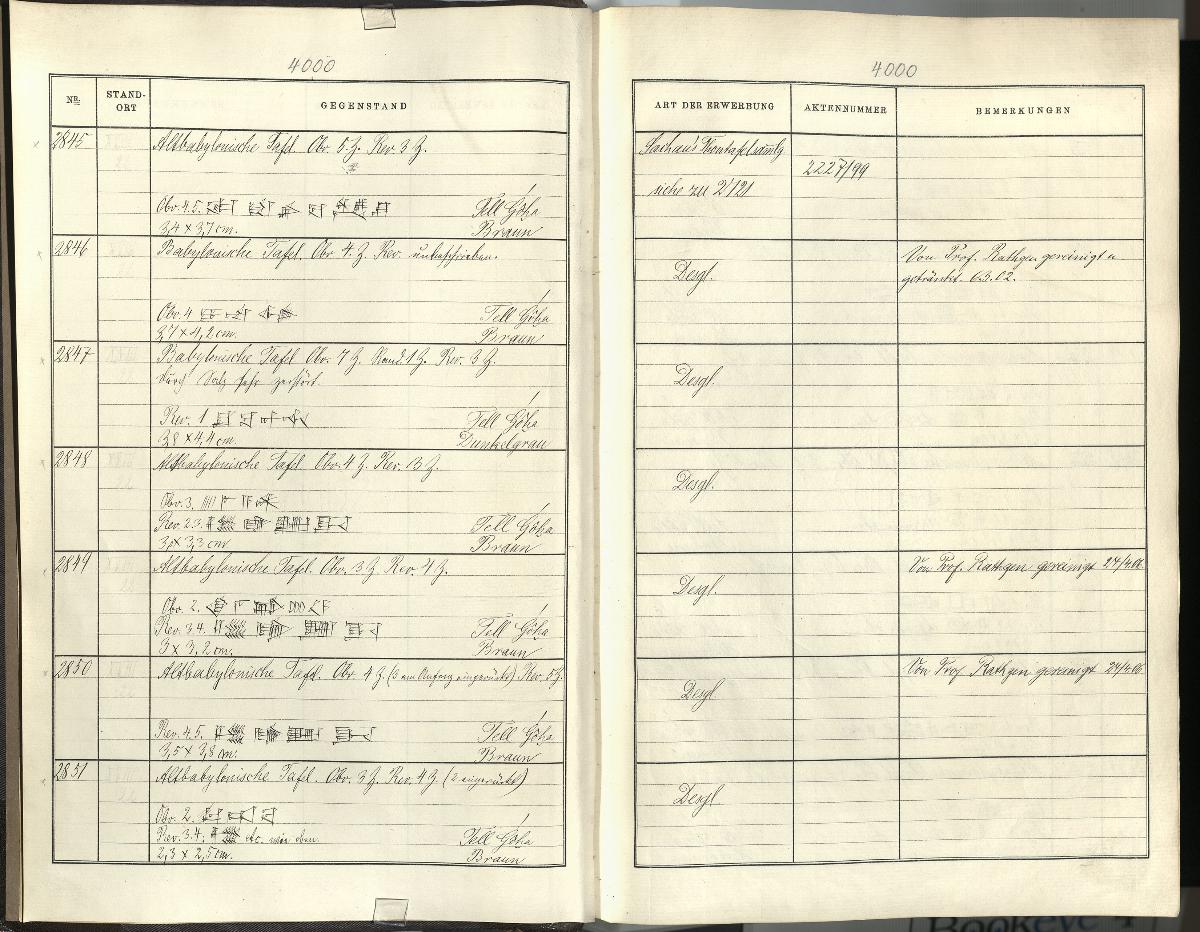 4000
NR. STAND-ORT GEGENSTAND
2845 Altbabylonische Tafel. Obv. 5 Z. Rev. 3 Z.
Obv. 4.5. Tell Góḫa
3,4 × 3,7 cm. Braun
2846 Babylonische Tafel. Obv. 4. Z. Rev. unbeschrieben.
Obv. 4 Tell Góḫa
3,7 × 4,2 cm. Braun
2847 Babylonische Tafel Obv. 7 Z. Rand. 1 Z. Rev. 3 Z.
durch Salz sehr zerstört.
Rev. 1 Tell Góḫa
3,8 × 4,4 cm. Dunkelgrau
2848 Altbabylonische Tafel Obv. 4 Z. Rev. 3 Z.
Obv. 3.
Rev. 2.3. Tell Góḫa
3,3 cm Braun
2849 Altbabylonische Tafel. Obv. 3 Z. Rev. 4 Z.
Obv. 2.
Rev. 3.4. Tell Góḫa
3 × 3,2 cm. Braun
2850 Altbabylonische Tafel. Obv. 4 Z. (3 am Anfang eingerückt) Rev. 5 Z.
Rev. 4.5. Tell Góḫa
3,5 × 3,8 cm. Braun
2851 Altbabylonische Tafel. Obv. 3 Z. Rev. 4 Z. (2 eingerückt)
Obv. 2.
Rev. 3.4. etc. wie oben. Tell Góḫa
2,3 × 2,5 cm. Braun
4000
ART DER ERWERBUNG AKTENNUMMER BEMERKUNGEN
Sachau's Thontafelsamlg 2227/99
siehe zu 2121
Desgl. Von Prof. Rathgen gereinigt u
getränkt. 6.3.02.
Desgl.
Desgl.
Desgl. Von Prof. Rathgen gereinigt
Desgl. Von Prof Rathgen gereinigt
Desgl.